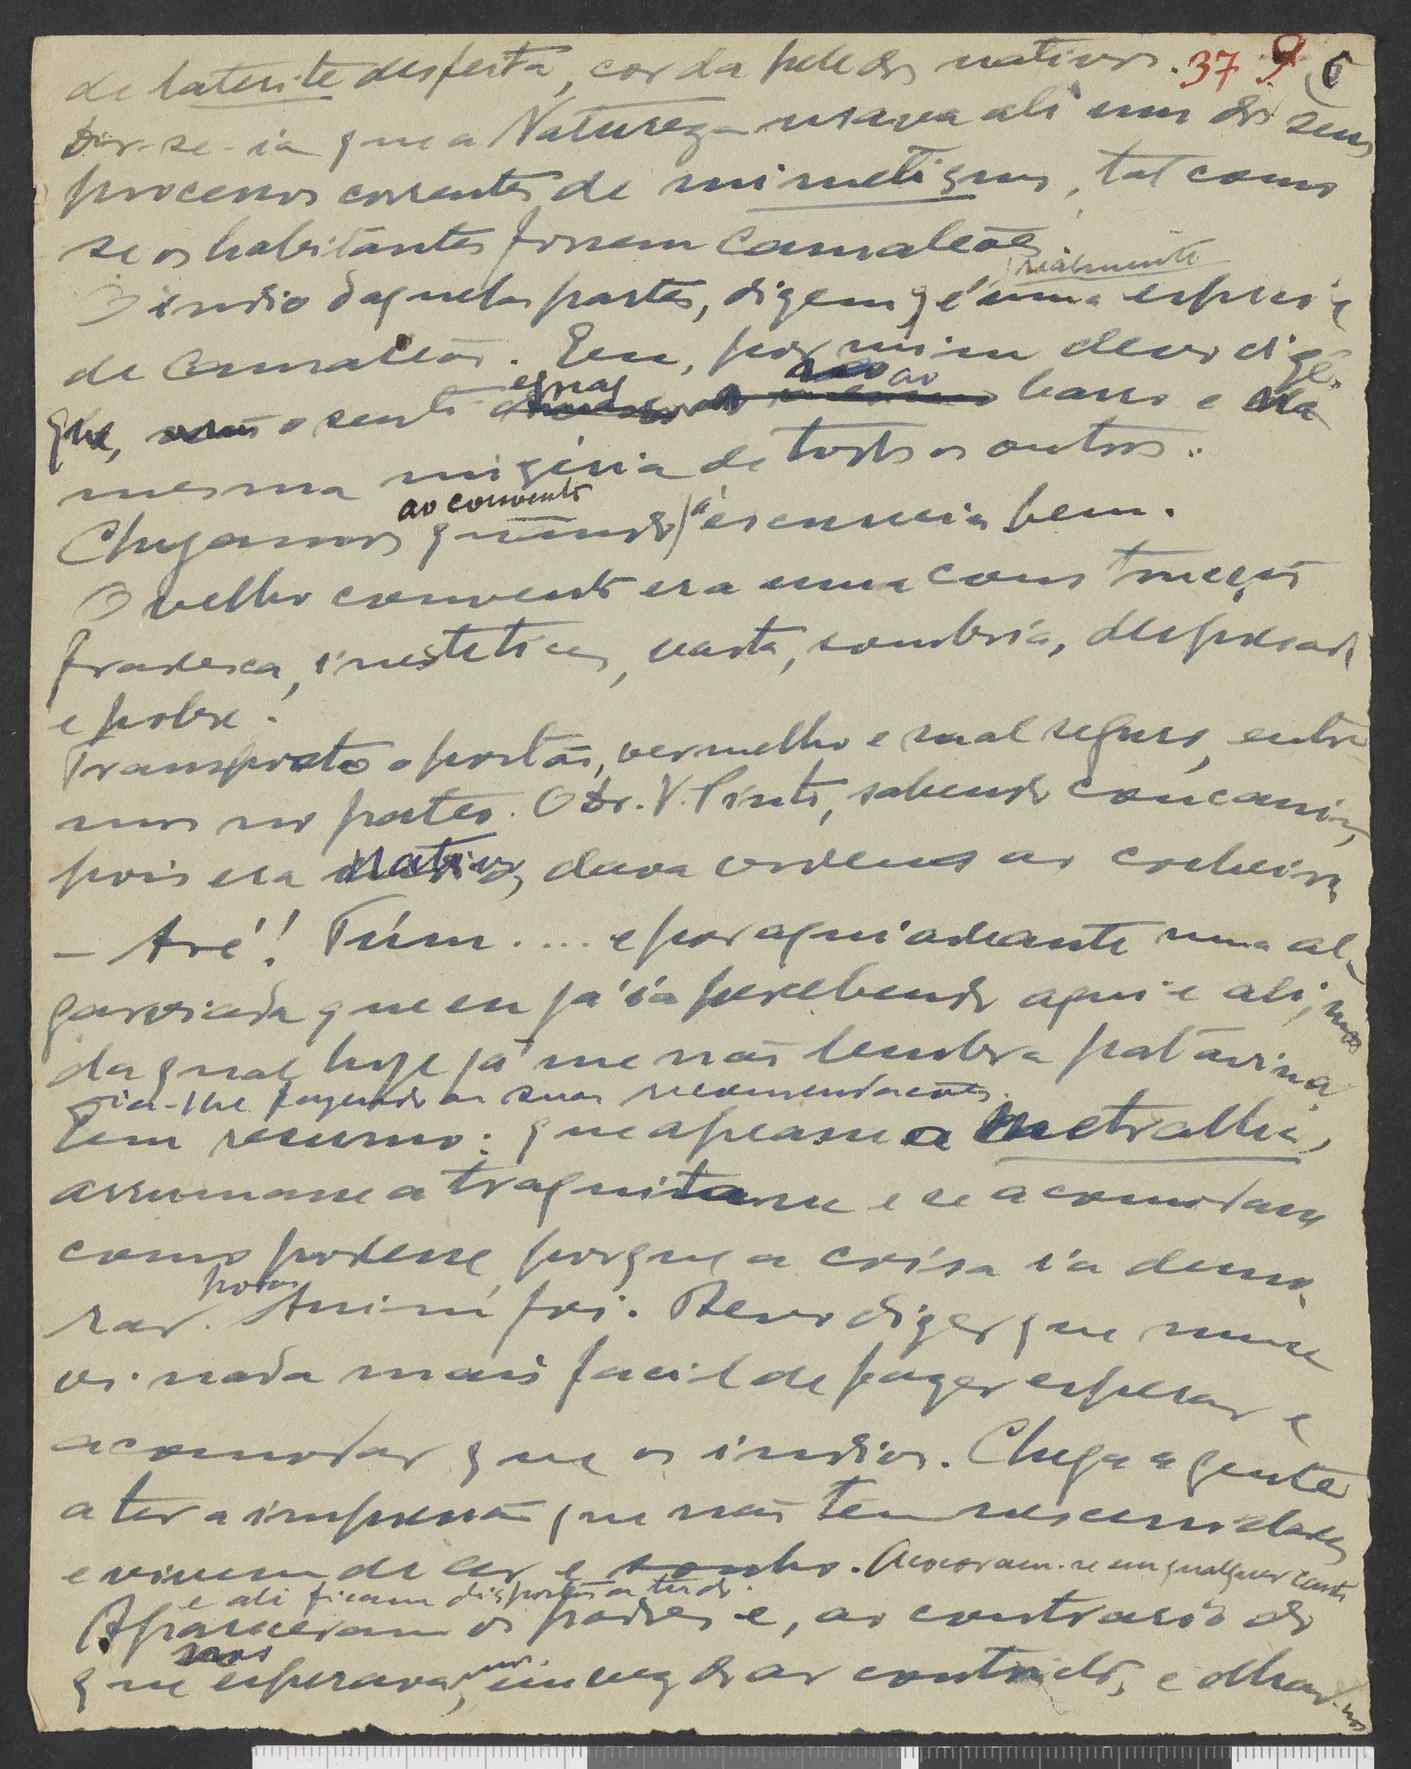 de laterite desfeita, cor da pele dos nativos. 37 9 6
Dir-se-ia que a Natureza usava ali um dos seus
processos correntes de mimetismo, tal como
se os habitantes fossem camaleões.
realmente
O indio daquelas partes, dizem, é uma especie
de camaleão. Eu, por mim devo dizer
que, o senti egual ao barro e na
mesma miséria de todos os outros.
ao convento
Chegamos quando já escurecia bem.
O velho convento era uma construção
fradesca, inestetica, vasta, sombria, despresada
e pobre.
Transposto o portão, vermelho e mal seguro, entra-
mos no pateo. O Dr. V. Pinto, sabendo concanim,
pois era nativo, dava ordens ao cocheiro
— Aré! Túm .... e por aqui adeante uma al-
garviada que eu já ía percebendo aqui e ali, mas
da qual hoje já me não lembra patavina.
ia-lhe fazendo as suas recomendações.
Em resumo: que apeasse a metralha,
arrumasse a traquitana e se acomodasse
como podesse, porque a coisa ia demo-
rar. Assim foi. Devo dizer que nunca
vi nada mais facil de fazer esperar e
acomodar que os indios. Chega a gente
a ter a impressão que não teem necessidades
e vivem de ar e sonho. Acocoram-se em qualquer canto
e ali ficam dispostos a tudo.
Apareceram os padres e, ao contrario do
que esperava, em vez do ar contrito, e olhar-nos